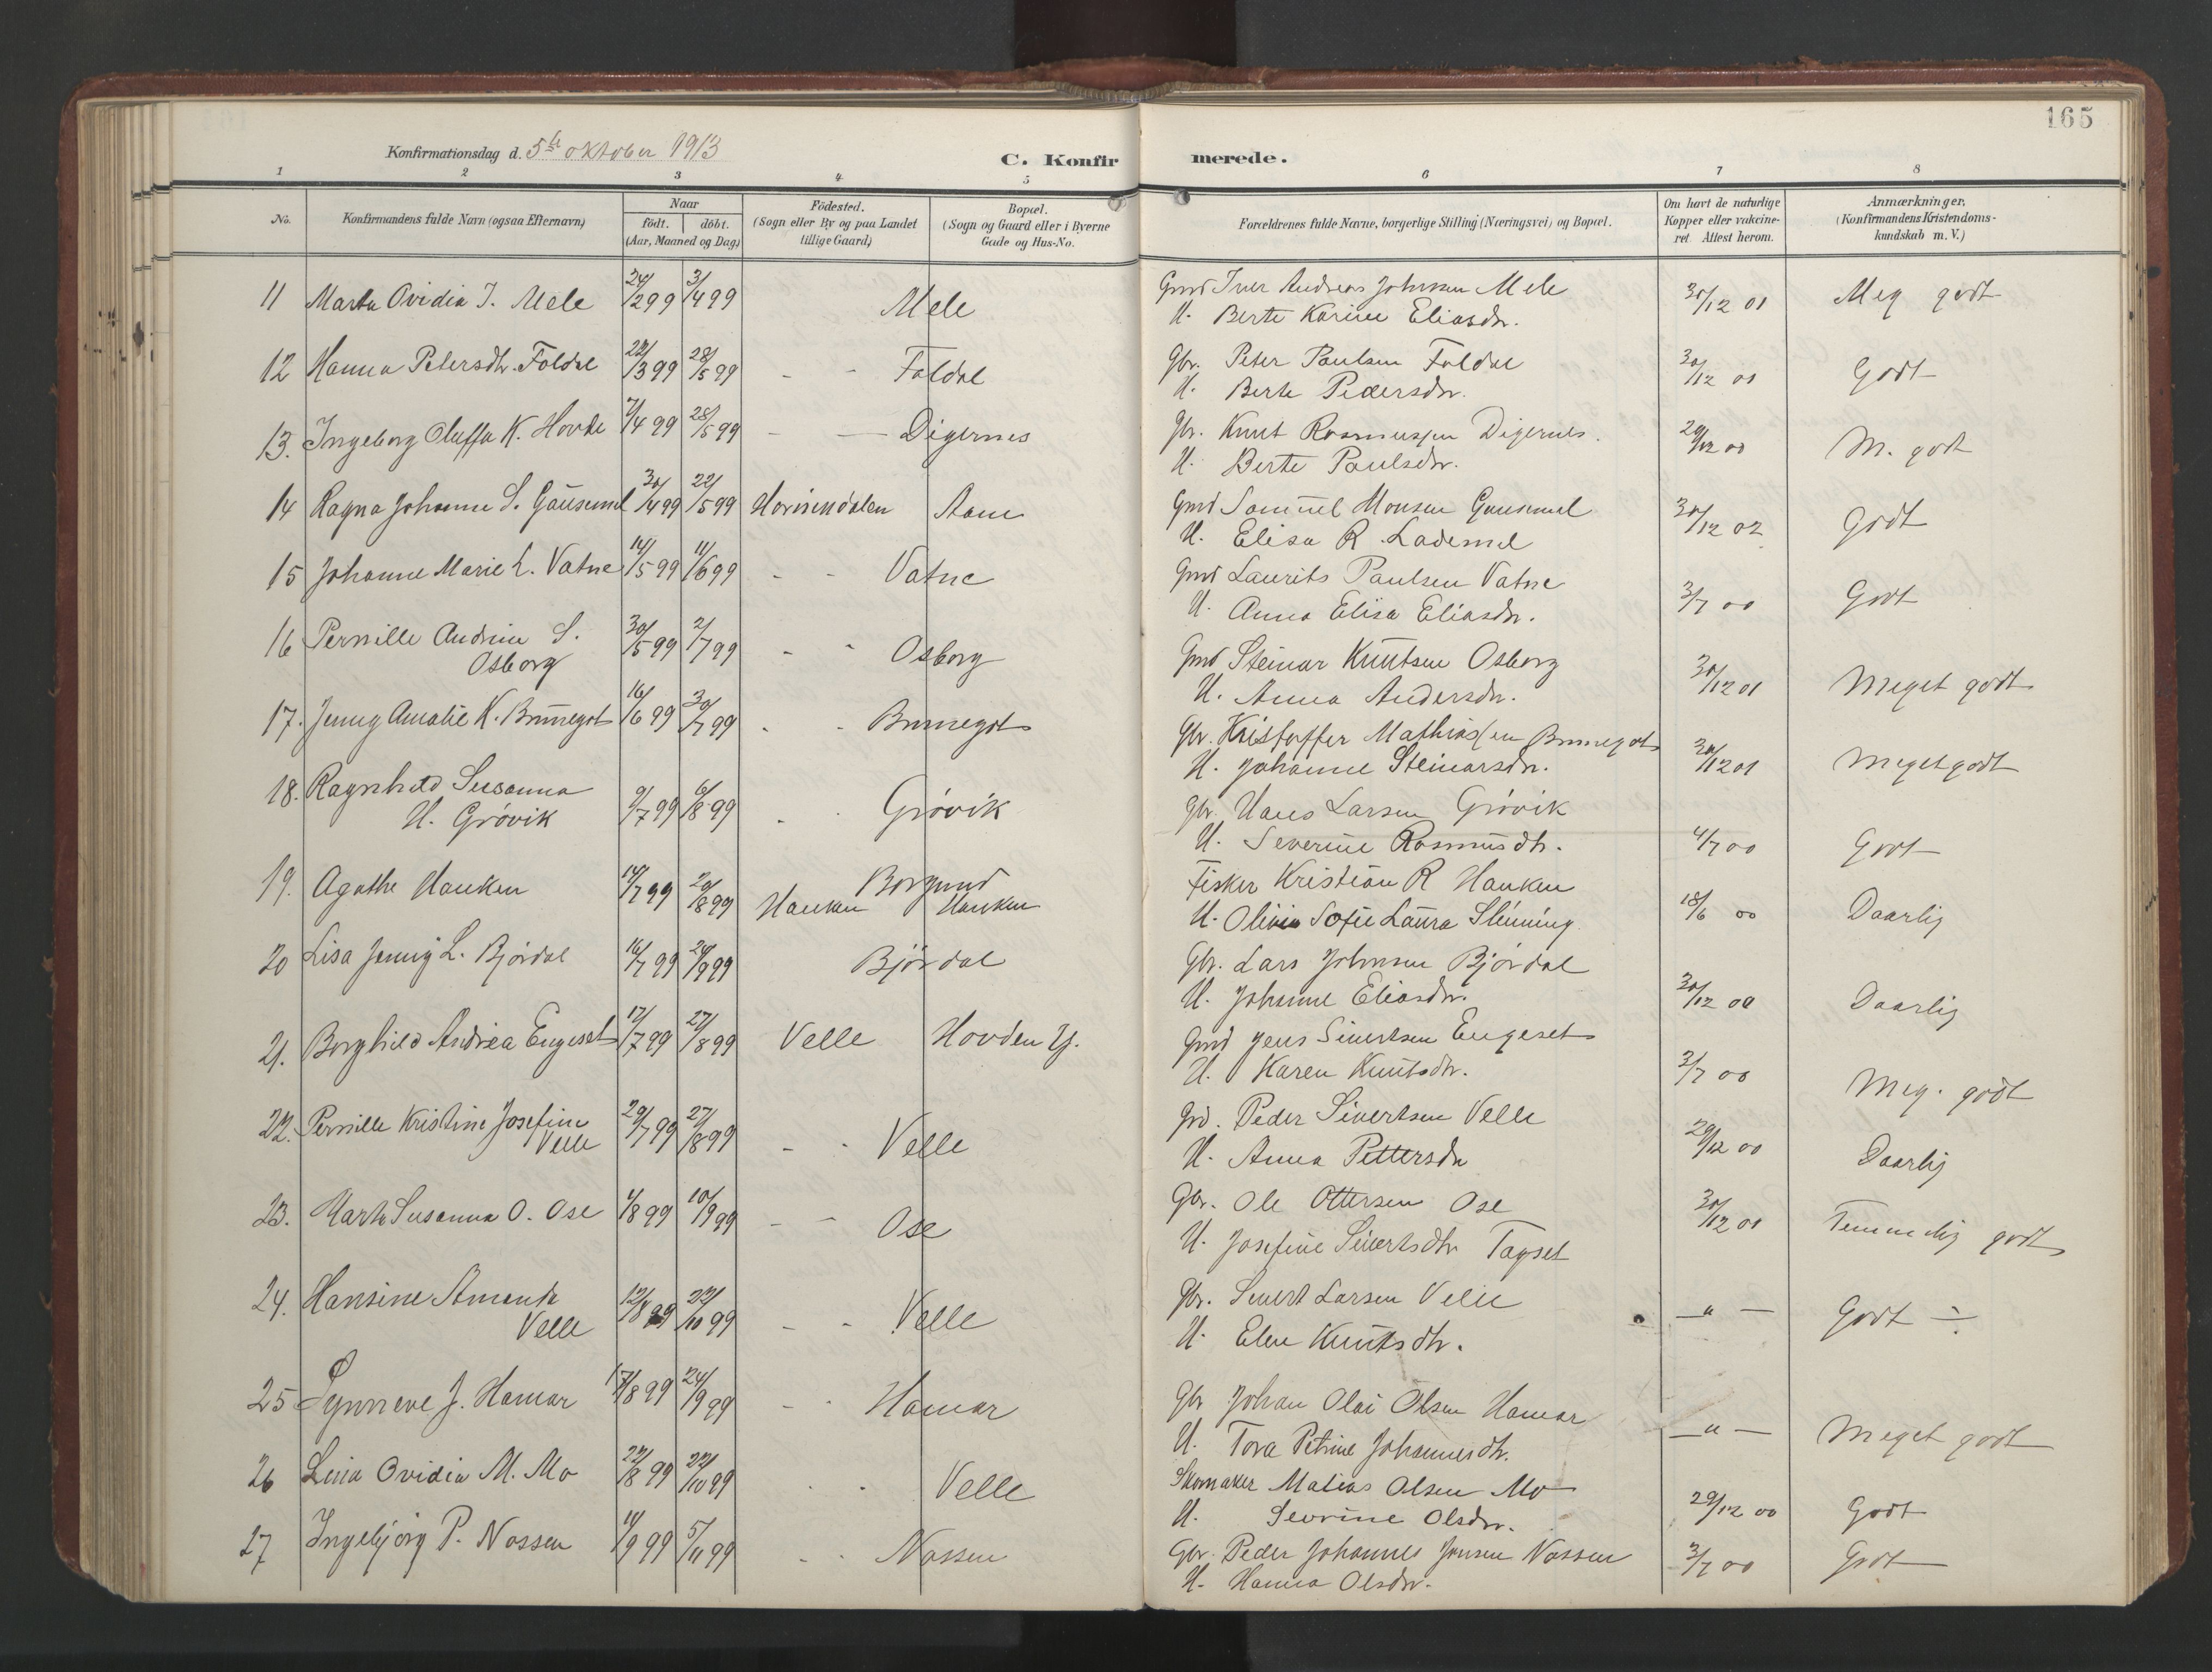 165
Konfirmationsdag d. 5te oktober 1913
C. Konfirmerede.
1 2 3 4 5 6 7 8
No.
Konfirmandens fulde Navn (ogsaa Efternavn)
Naar
födt. döbt.
(Aar, Maaned og Dag)
Födested.
(Sogn eller By og paa Landet
tillige Gaard)
Bopæl.
(Sogn og Gaard eller i Byerne
Gade og Hus-No.
Forældrenes fulde Navne, borgerlige Stilling (Næringsvei) og Bopæl.
Om havt de naturlige
Kopper eller vakcine-
ret Attest herom.
Anmærkninger,
(Konfirmandens Kristendoms-
kundskab m. V.)
11 Marta Ovidia I. Mele 24/2 99 3/4 99 Mele Gmd Iver Andreas Johnsen Mele 30/12 01 Meg godt
H. Berte Karine Eliasdr.
12 Hanna Petersdtr. Foldal 22/3 99 28/5 99 - - Foldal Gbr. Peter Paulsen Foldal 30/12 01 Godt
H. Berte Pedersdr.
13. Ingeborg Oluffa K. Hovde 7/4 99 28/5 99 - — Digernes Gbr. Knut Rasmussen Digernes. 29/12 00 M. godt
H. Berte Paulsdr.
14 Ragna Johanne S. Gausemel 30/4 99 22/5 99 Aam Gmd Samuel Monsen Gausemel 30/12 02 Godt
H. Elisa R. Lademel
15 Johanne Marie L. Vatne 14/5 99 11/6 99 - - Vatne Gmd Laurits Paulsen Vatne 3/7 00 Godt
H. Anna Elisa Eliasdr.
16 Pernille Andrine S. 30/5 99 2/7 99 - - Osborg Gmd Steinar Knutsen Osborg 30/12 01 Meget godt
Osborg H. Anna Andersdr.
17. Jenny Amalie K. Brunegot 16/6 99 30/7 99 - - Brunegot Gbr. Kristoffer Mathiassen Brunegot 30/12 01 Meget godt
H. Johanne Steinarsdr.
18. Ragnhild Susanna 9/7 99 6/8 99 - - Grövik Gbr. Hans Larsen Grövik 4/7 00 Godt
H. Grövik H. Severine Rasmusdtr.
19. Agathe Hanken 14/7 99 20/8 99 Borgund Fisker Kristian R Hanken 18/6 00 Daarlig
Hanken Hanken H. Olivia Sofie Laura Slinning.
20 Lisa Jenny L. Björdal 16/7 99 24/9 99 Björdal Gbr. Lars Johnsen Björdal 30/12 00 Daarlig
H. Johanne Eliasdr.
21. Borghild Andrea Engeset 17/7 99 27/8 99 Velle Hovden Y. Gmd Jens Sivertsen Engeset 3/7 00 Meg. godt
H. Karen Knutsdtr.
22. Pernille Kristine Josefine 29/7 99 27/8 99 - - Velle Peder Sivertsen Velle 29/12 00 Daarlig
Velle H. Anna Pettersdr
23. Marta Susanna O. Ose 4/8 99 10/9 99 - - Ose Gbr. Ole Ottersen Ose 30/12 01 Temmelig godt
H. Josefine Sivertsdtr Tagset
24. Hansine Amanda 12/8 99 22/10 99 - - Velle Gbr. Sivert Larsen Velle —"— Godt ÷
Velle H. Elen Knutsdtr.
25 Synneve J. Hamar 17/8 99 24/9 99 - - Hamar Gbr Johan Olai Olsen Hamar —"— Meget godt
H. Tora Petrine Johannesdtr.
26 Lina Ovidia M. Mo 22/8 99 22/10 99 - - Velle Skomaker Matias Olsen Mo 29/12 00 Godt
H. Sevrine Olsdr.
27 Ingebjörg P. Nossen 11/9 99 5/11 99 - - Nossen Gbr. Peder Johannes Jonsen Nossen 3/7 00 Godt
H. Hanna Olsdr.